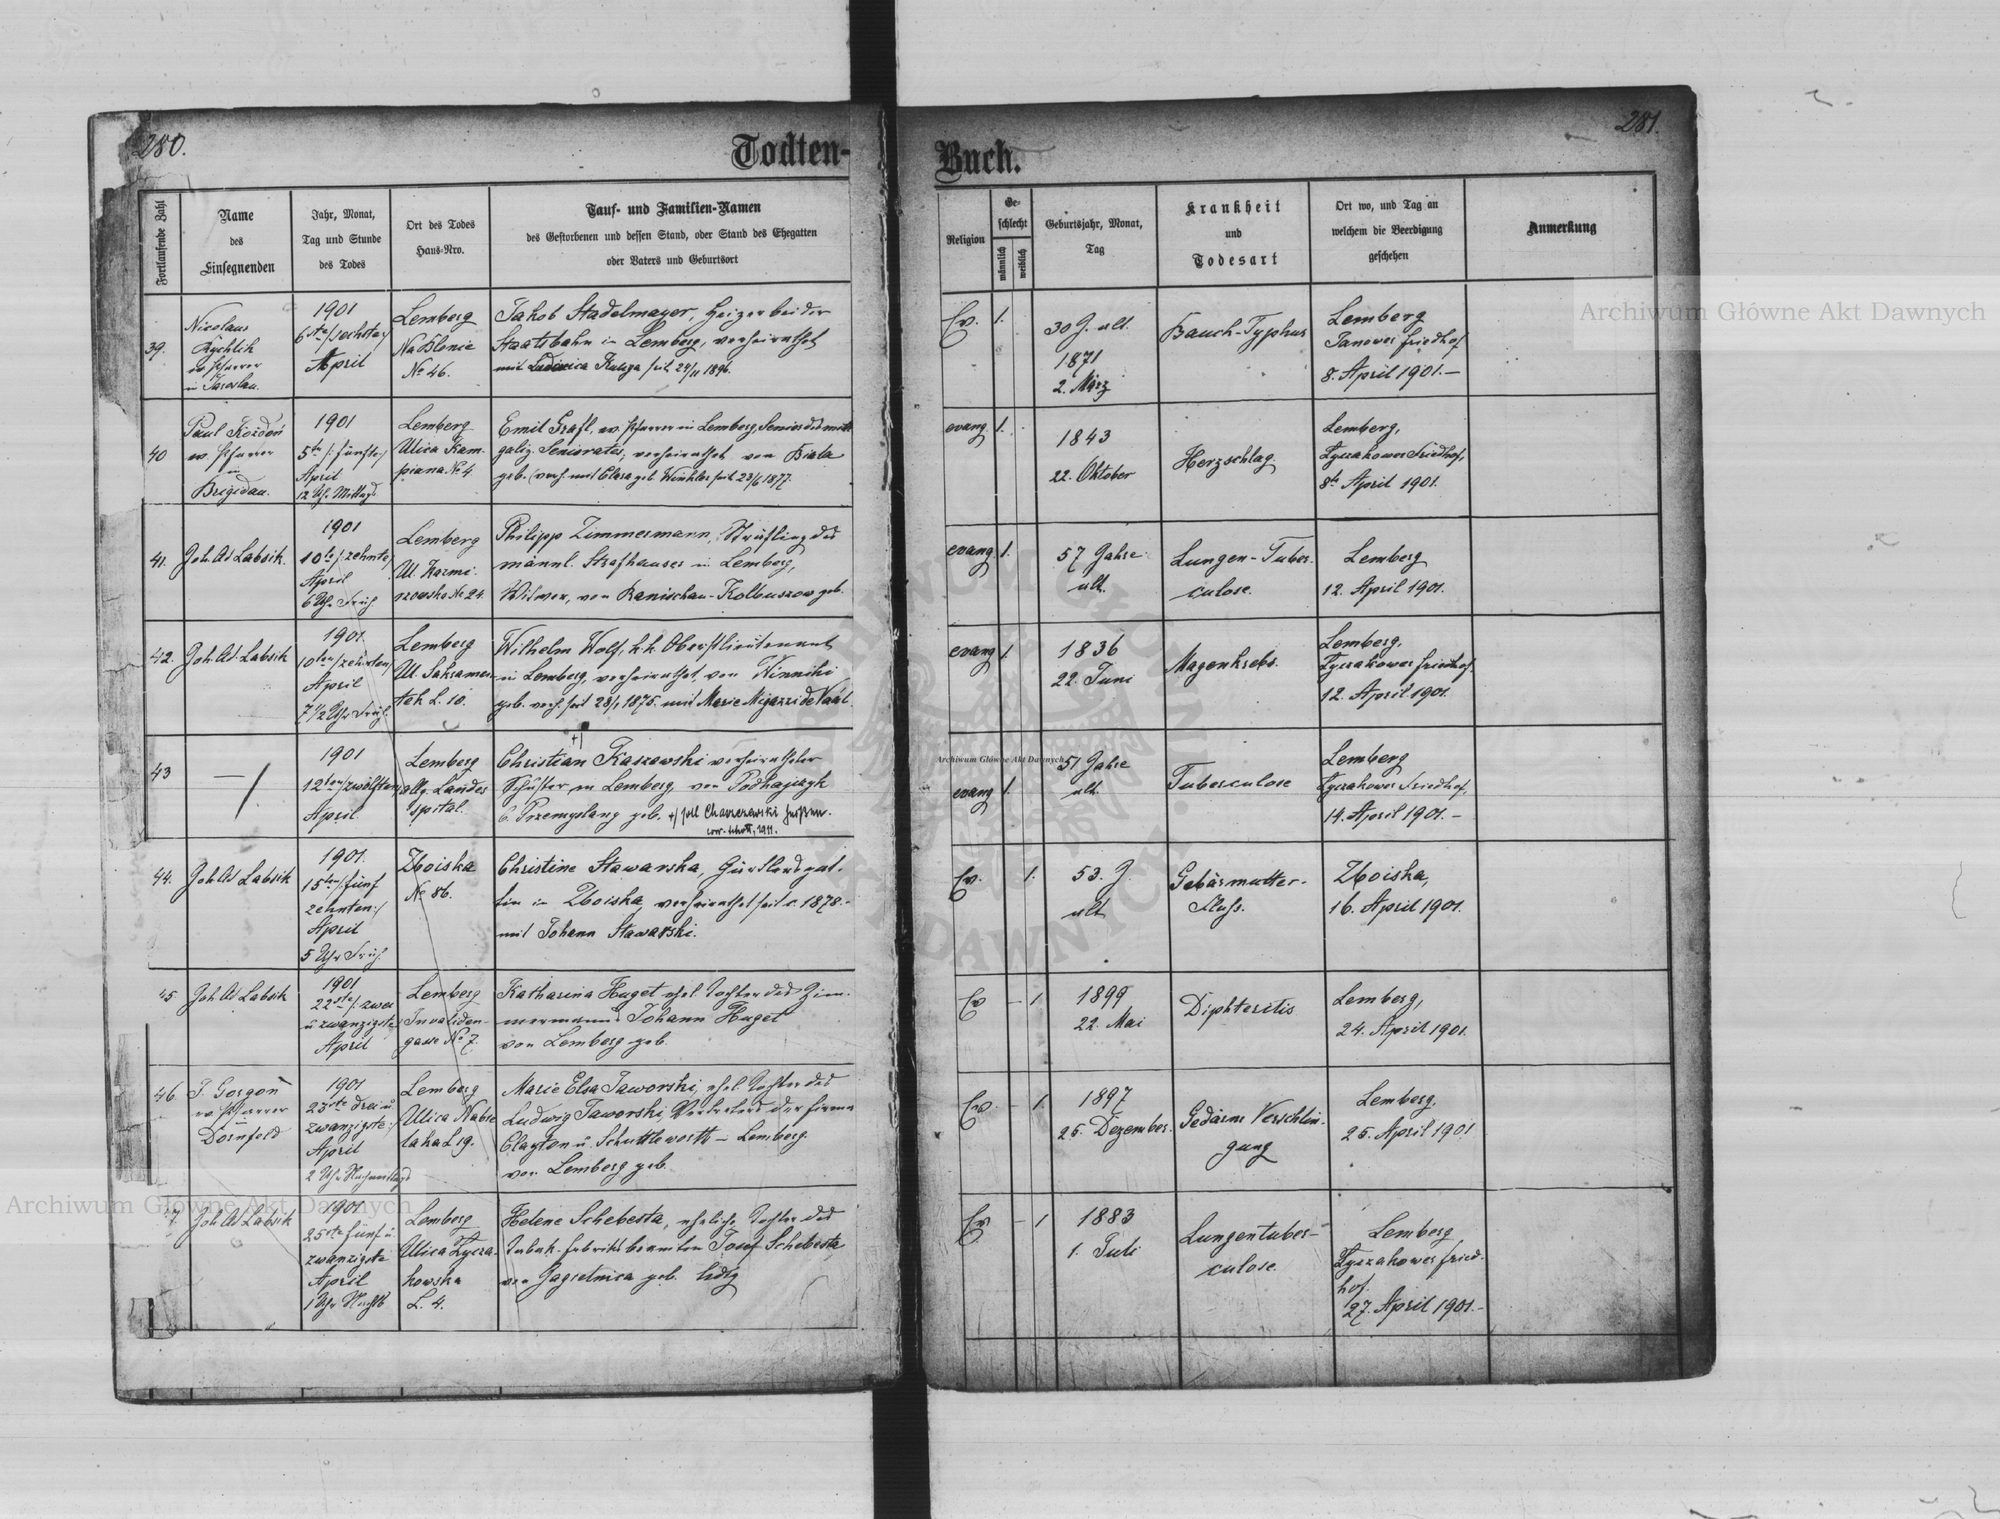 280.
Todten-
Fortlaufende Zahl
Name
des
Einsegnenden
Jahr, Monat,
Tag und Stunde
des Todes
Ort des Todes
Haus-Nro.
Tauf- und Familien-Namen
des Gestorbenen und dessen Stand, oder Stand des Ehegatten
oder Vaters und Geburtsort
39.
Nicolaus
Rychlik
ev. Pfarrer
in Jaroslau.
1901
6te /sechste/
April
Lemberg
Na Błonie
No 46.
Jakob Stadelmayer, Heizer bei der
Staatsbahn in Lemberg, verheirathet
mit Ludovica Kuliga seit 1896.
40
Paul Kozdoń
ev. Pfarrer
in
Brigidau.
1901
5te /: fünfte/
April
12 Uhr Mittags
Lemberg
Ulica Kam-
piana No 4
Emil Grafl, ev. Pfarrer in Lemberg, Senior des mittl.
galiz. Seniorates, verheirathet von Biala
geb. (verh. mit Clara geb. Winkler seit 23/6 1877.
41.
Joh. Ad. Labsik.
1901
10te /: zehnte/
April
6 Uhr Früh
Lemberg
Ul. Kazmi-
rzowska No 24.
Philipp Zimmermann, Sträfling des
männl. Strafhauses in Lemberg,
Witwer, von Ranischau-Kolbuszow geb.
42.
Joh. Ad. Labsik
1901
10ten /zehnten/
April
7 1/2 Uhr Früh.
Lemberg
Ul. Sakramen-
tek L. 10.
Wilhelm Wolf, k.k. Oberstlieutenant
in Lemberg, verheirathet, von Winniki
geb. verh. seit 28/1 1875. mit Marie Migazzi de Vaal.
43
—
1901
12ten /zwölften/
April
Lemberg
allg. Landes
spital.
+/
Christian Kaszewski verheiratheter
Schuster in Lemberg, von Podhajczyk
b. Przemyslany geb. +/ soll Charczewski heißen.
1911.
44.
Joh. Ad. Labsik
1901.
15ten /: fünf
zehnten:/
April
5 Uhr Früh.
Zboiska
No 86.
Christine Stawarska, Gürtlersgat-
tin in Zboiska, verheirathet seit c. 1878.-
mit Johann Stawarski.
45
Joh. Ad. Labsik
1901
22ste /: zwei
u. zwanzigste/
April
Lemberg
Invaliden-
gasse No 7.
Katharina Huget ehel. Tochter des Zim-
mermanns Johann Huget
von Lemberg geb.
46.
J. Gorgoń
ev. Pfarrer
in
Dornfeld
1901
23ste drei u.
zwanzigste:/
April
2 Uhr Nachmittags
Lemberg
Ulica Nabie-
laka L 19.
Marie Elsa Jaworski, ehel. Tochter des
Ludwig Jaworski Vertreters der Firma
Clayton u. Schuttleworth - Lemberg.
von Lemberg geb.
47.
Joh. Ad. Labsik
1901
25ste fünf u.
zwanzigste
April
1 Uhr Nachts
Lemberg
Ulica Łycza-
kowska
L. 4.
Helene Schebesta, eheliche Tochter des
Tabak-Fabriksbeamten Josef Schebesta,
von Jagielnica geb. ledig
281.
Buch.
Religion
Ge-
schlecht
männlich
weiblich
Geburtsjahr, Monat,
Tag
Krankheit
und
Todesart
Ort wo, und Tag an
welchem die Beerdigung
geschehen
Anmerkung
Ev.
1.
30 J. alt.
1871
2. März
Bauch-Typhus
Lemberg
Janower Friedhof
8. April 1901.—
evang.
1.
1843
22. Oktober
Herzschlag.
Lemberg,
Łyczakower Friedhof,
8te April 1901.
evang
1.
57 Jahre
alt.
Lungen-Tuber-
culose.
Lemberg
12. April 1901.
evang
1.
1836
22. Juni
Magenkrebs.
Lemberg,
Łyczakower Friedhof.
12. April 1901.
evang
1.
51 Jahre
alt.
Tuberculose
Lemberg
Łyczakower Friedhof,
14. April 1901.—
Ev.
1.
53. J.
alt
Gebärmutter-
Fluss.
Zboiska,
16. April 1901.
Ev
-
1.
1899
22. Mai
Diphteritis
Lemberg,
24. April 1901.
Ev.
-
1.
1897
25. Dezember.
Gedärm Verschlin-
gung
Lemberg.
25. April 1901
Ev.
-
1
1883
1. Juli
Lungentuber-
culose.
Lemberg
Łyczakower Fried-
hof.
27. April 1901.-
Archiwum Główne Akt Dawnych
Archiwum Główne Akt Dawnych
Archiwum Główne Akt Dawnych